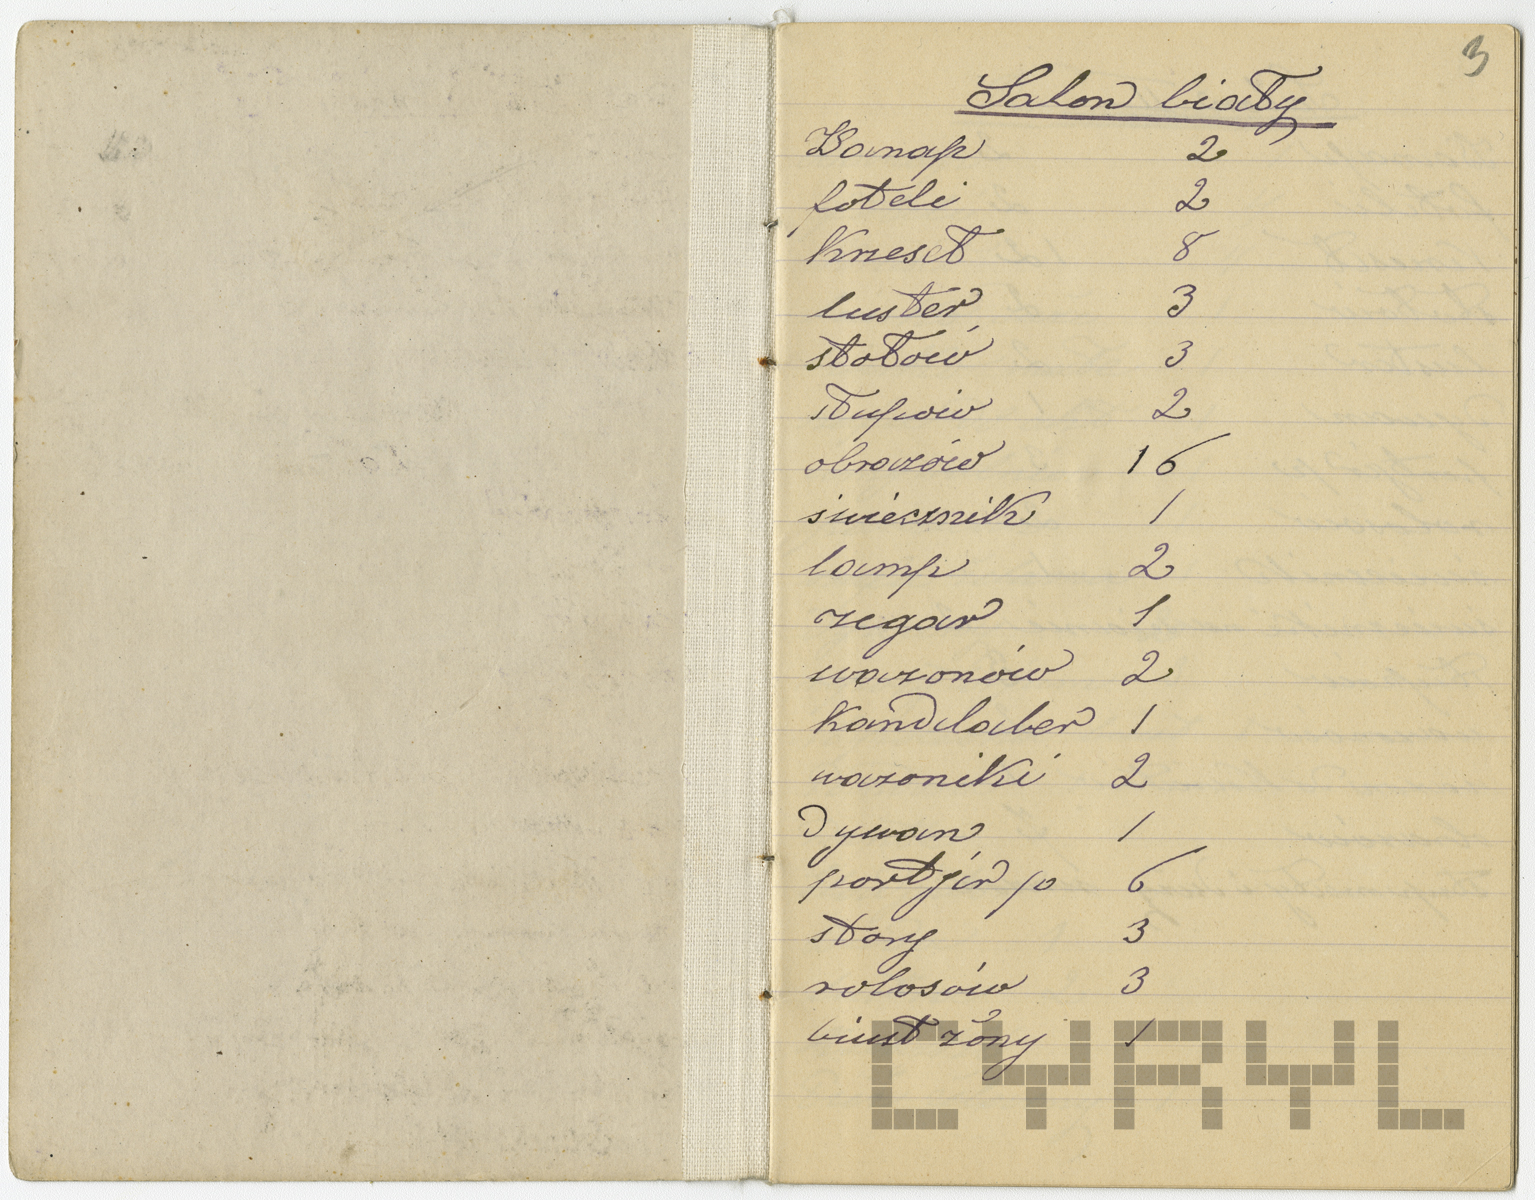 3
Salon biały
Kanap 2
foteli 2
Krzeseł 8
luster 3
stołów 3
słupów 2
obrazów 16
świecznik 1
lamp 2
zegar 1
wazonów 2
Kandlaber 1
wazoniki 2
Dywan 1
portjer p 6
story 3
rolosów 3
biust żony 1
CYRYL